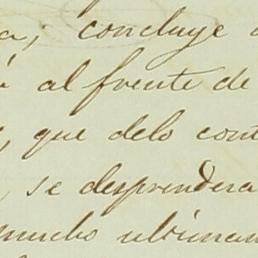 a; concluye
al frente de
, que delo cont
, se desprendera
mucho